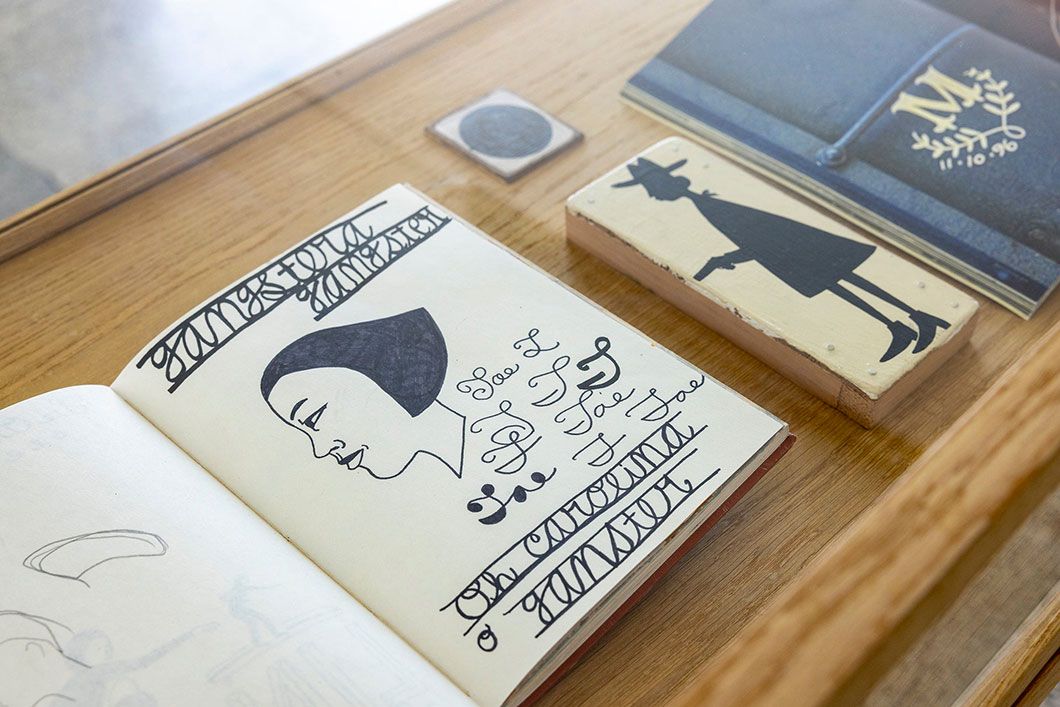 gangstera
gangster
Joe J
J J J
J Joe
J Joe
J
Joe
Oh carolina
o ganster
M
11·10·96